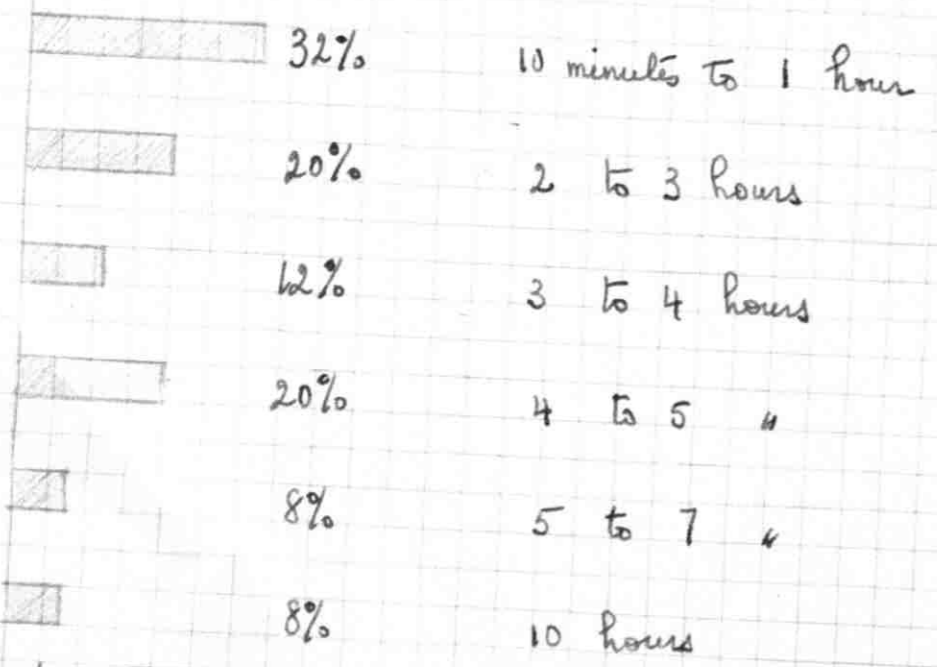 32% 10 minutes to 1 hour
20% 2 to 3 hours
12% 3 to 4 hours
20% 4 to 5 "
8% 5 to 7 "
8% 10 hours